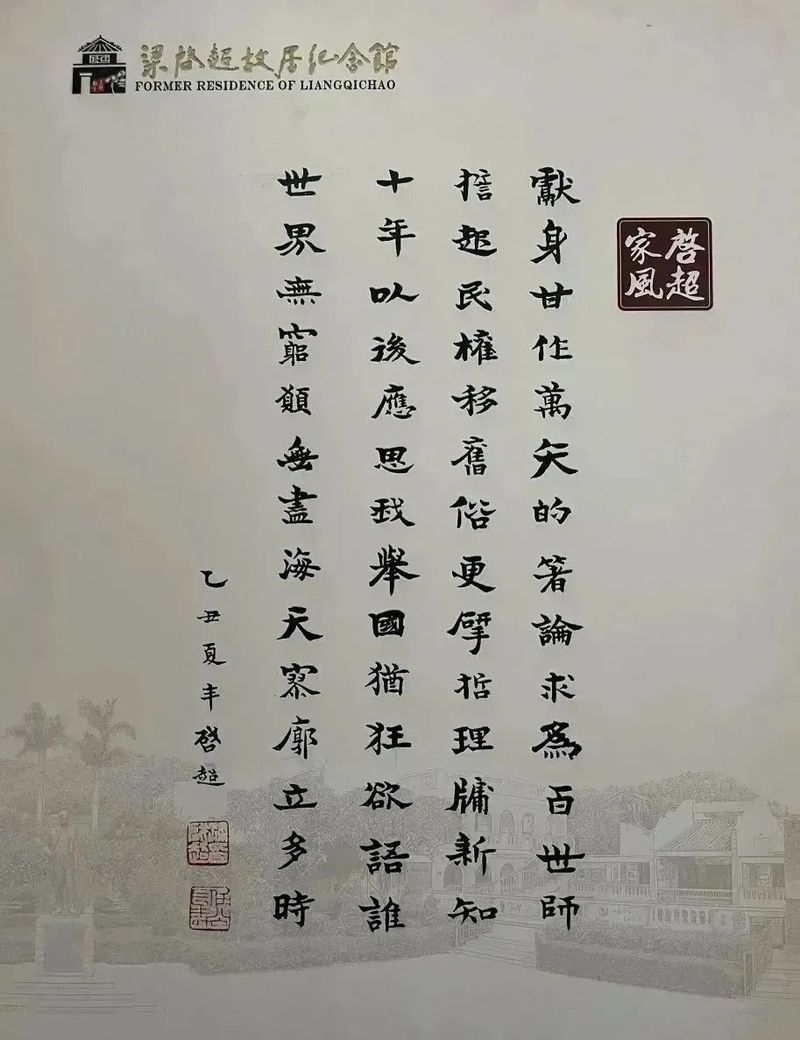 梁啓超故居纪念館
FORMER RESIDENCE OF LIANGQICHAO
啓超
家風
獻身甘作萬矢的箸論求為百世師
擔起民權移舊俗更揅哲理牖新知
十年以後應思我舉國猶狂欲語誰
世界無窮願無盡海天寥廓立多時
乙丑夏半啓超